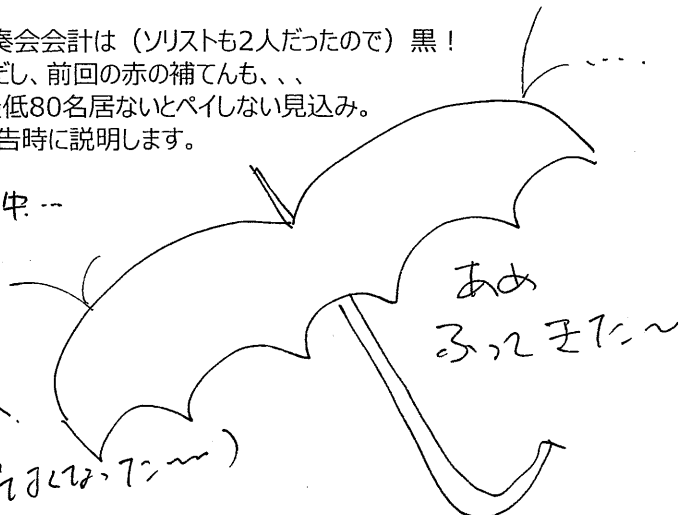 奏会会計は（ソリストも2人だったので）黒！
だし、前回の赤の補てんも、、、
低80名居ないとペイしない見込み。
告時に説明します。
中…
あめ
ふってきたー〜
くなったー〜〜）